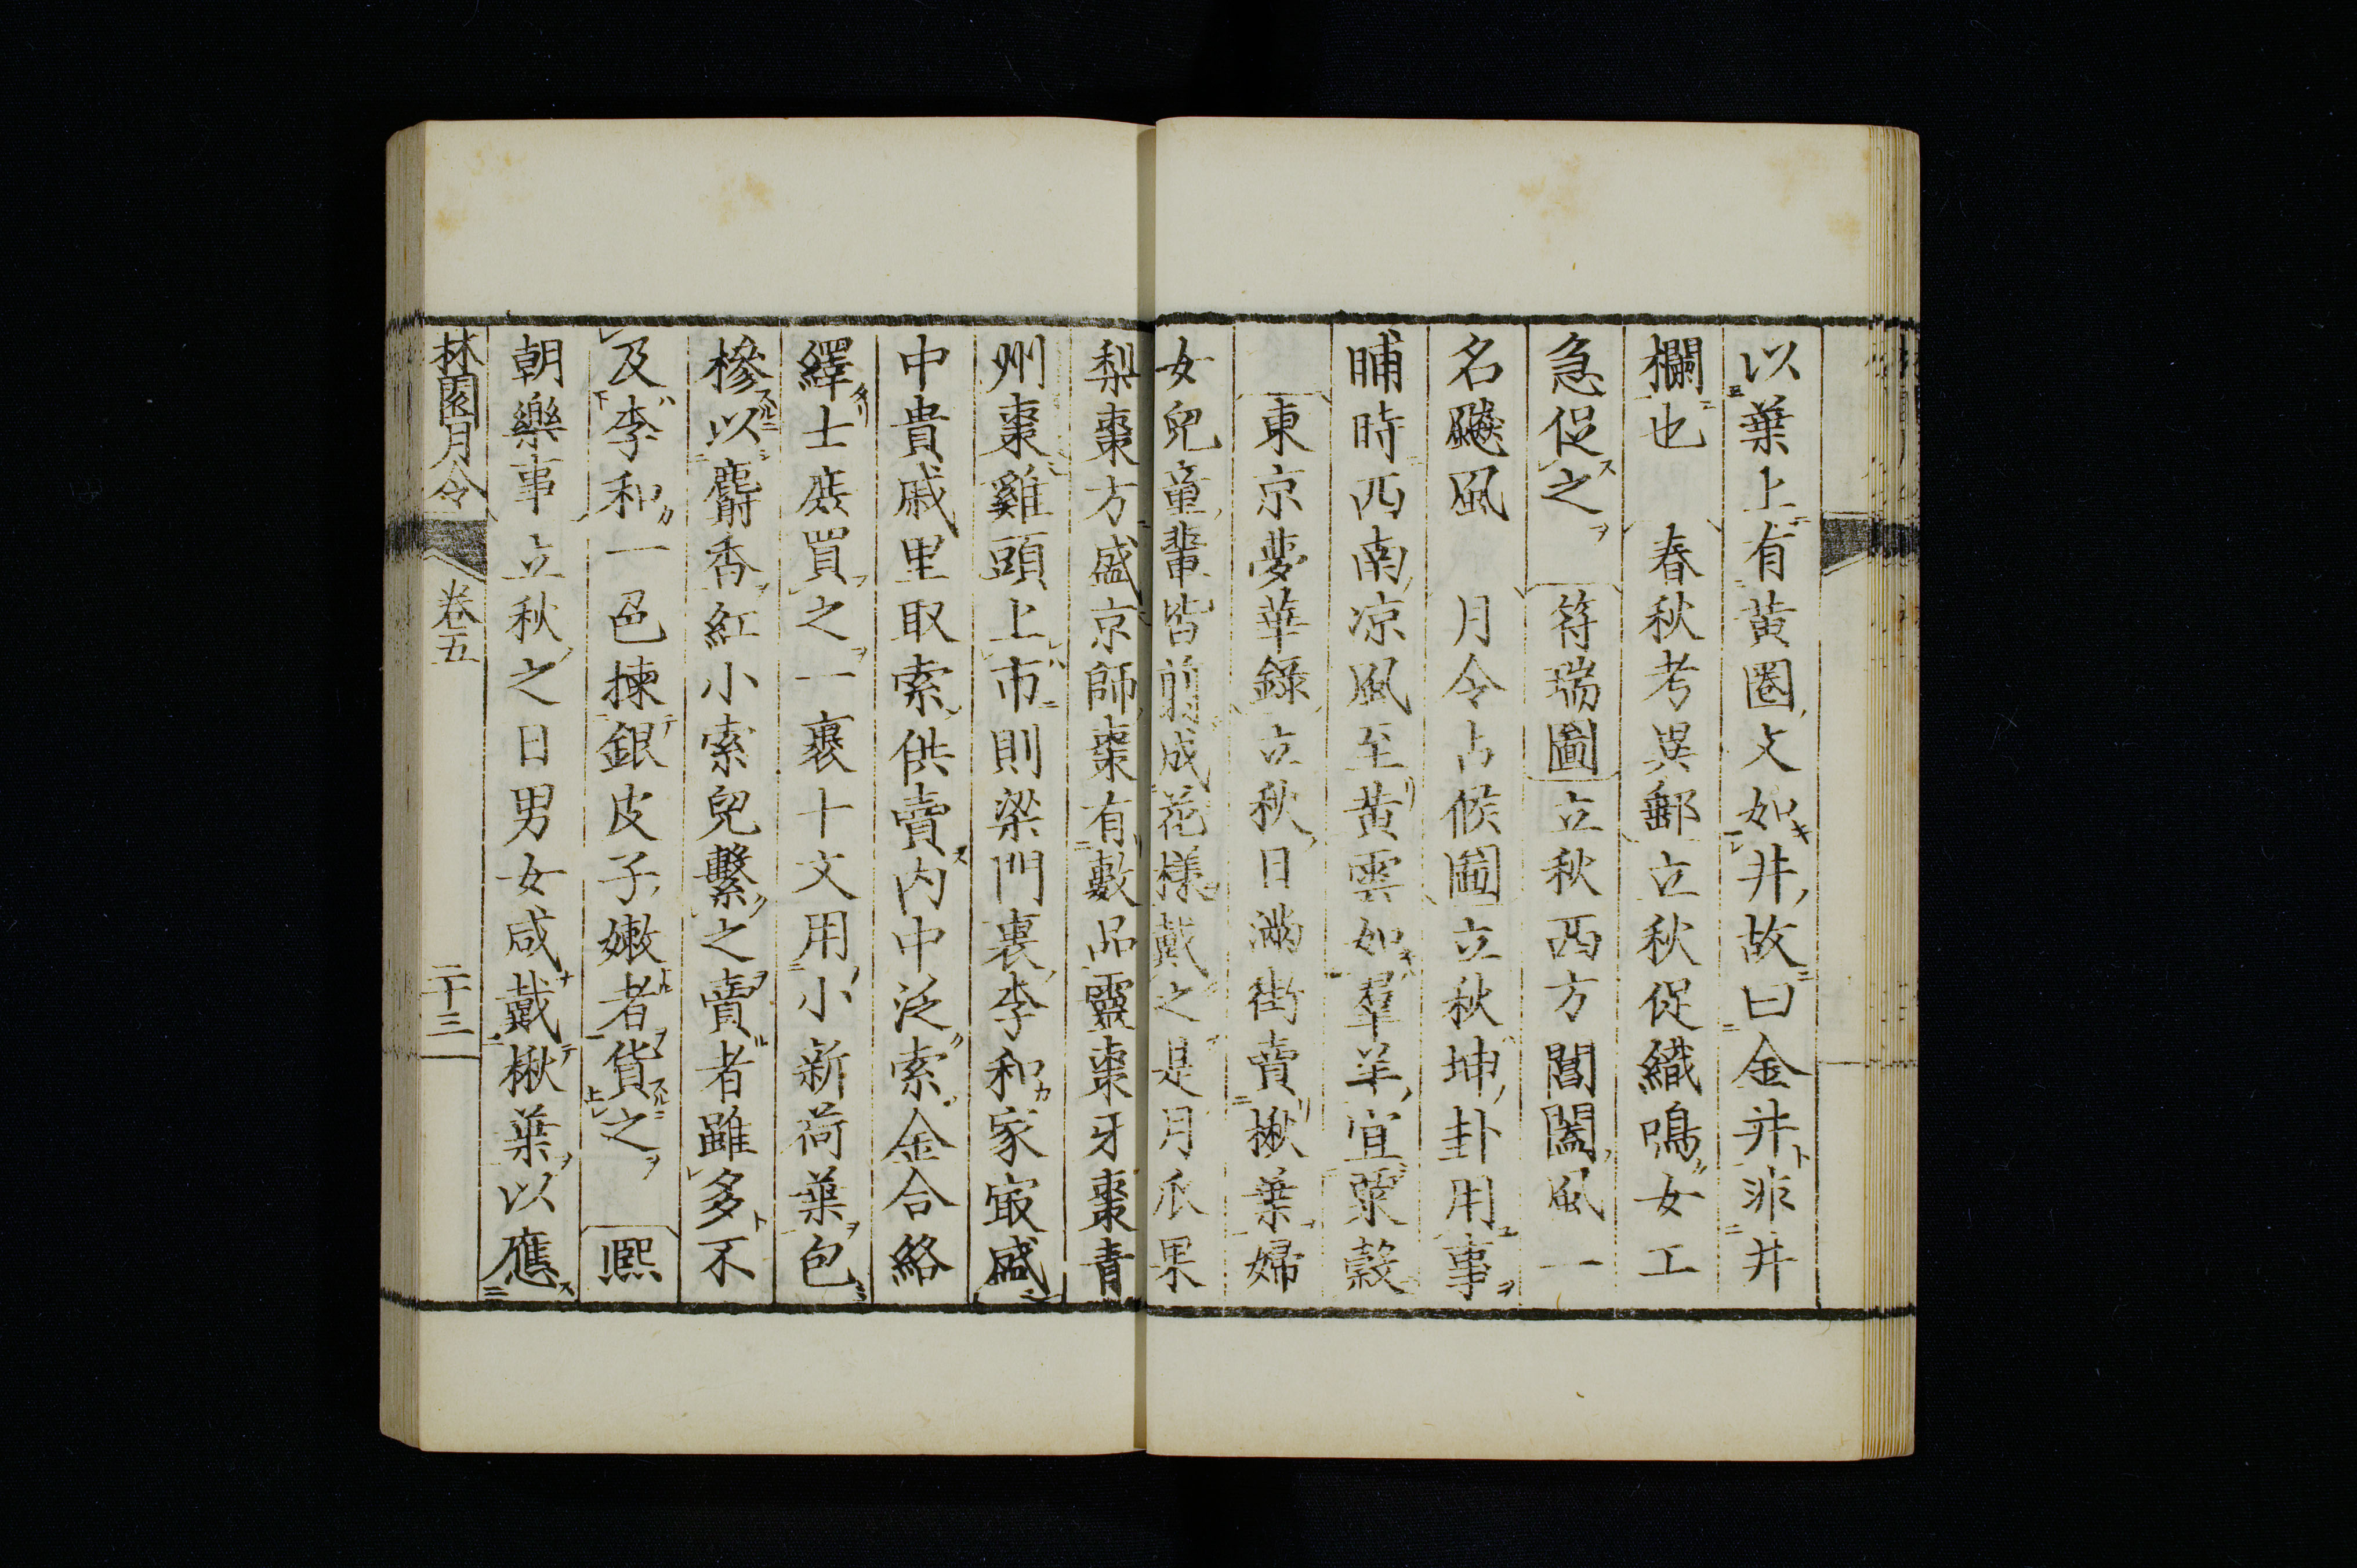 以葉上有黄圈文如井故曰金井非井
欄也　春秋考異郵立秋促織鳴女工
急促之　符瑞圖立秋西方閶闔風一
名飂風　月令占候圖立秋坤卦用事
晡時西南凉風至黄雲如羣羊宜粟穀
東京夢華錄立秋日滿街賣楸葉婦
女兒童輩皆剪成花樣戴之是月瓜果
梨棗方盛京師棗有數品靈棗牙棗青
州棗雞頭上市則梁門裏李和家最盛
中貴戚里取索供賣内中泛索金合絡
繹士庶買之一裹十文用小新荷葉包
糝以麝香紅小索兒繫之賣者雖多不
及李和一色揀銀皮子嫩者貨之　熙
朝樂事立秋之日男女咸戴楸葉以應
林園月令　卷五　二十三